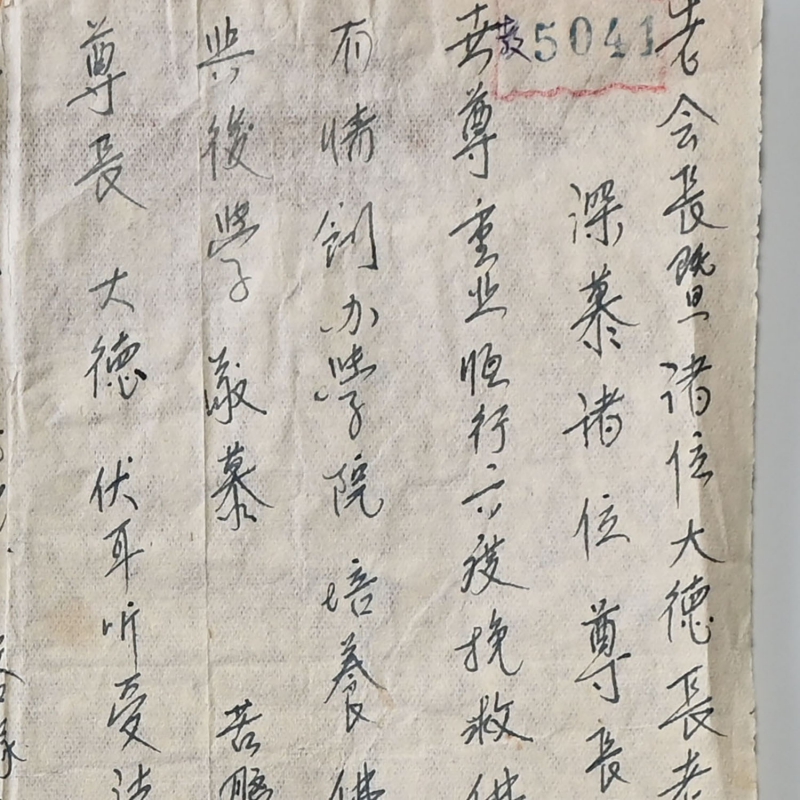 老会長暨诸位大德長老
深慕诸位尊長
尊重业恒行六度挽救佛
有情创办學院培養佛
後學敬慕 苦
尊長 大德 伏耳听受法
5041